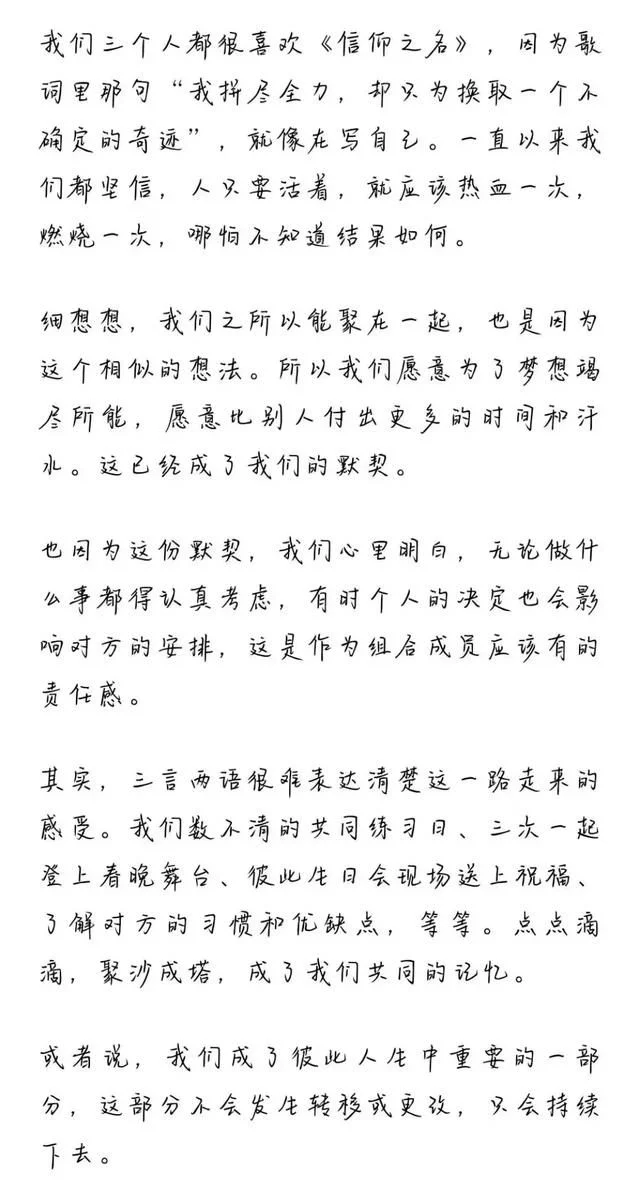 我们三个人都很喜欢《信仰之名》，因为歌
词里那句“我拼尽全力，却只为换取一个不
确定的奇迹”，就像在写自己。一直以来我
们都坚信，人只要活着，就应该热血一次，
燃烧一次，哪怕不知道结果如何。
细想想，我们之所以能聚在一起，也是因为
这个相似的想法。所以我们愿意为了梦想竭
尽所能，愿意比别人付出更多的时间和汗
水。这已经成了我们的默契。
也因为这份默契，我们心里明白，无论做什
么事都得认真考虑，有时个人的决定也会影
响对方的安排，这是作为组合成员应该有的
责任感。
其实，三言两语很难表达清楚这一路走来的
感受。我们数不清的共同练习日、三次一起
登上春晚舞台、彼此生日会现场送上祝福、
了解对方的习惯和优缺点，等等。点点滴
滴，聚沙成塔，成了我们共同的记忆。
或者说，我们成了彼此人生中重要的一部
分，这部分不会发生转移或更改，只会持续
下去。